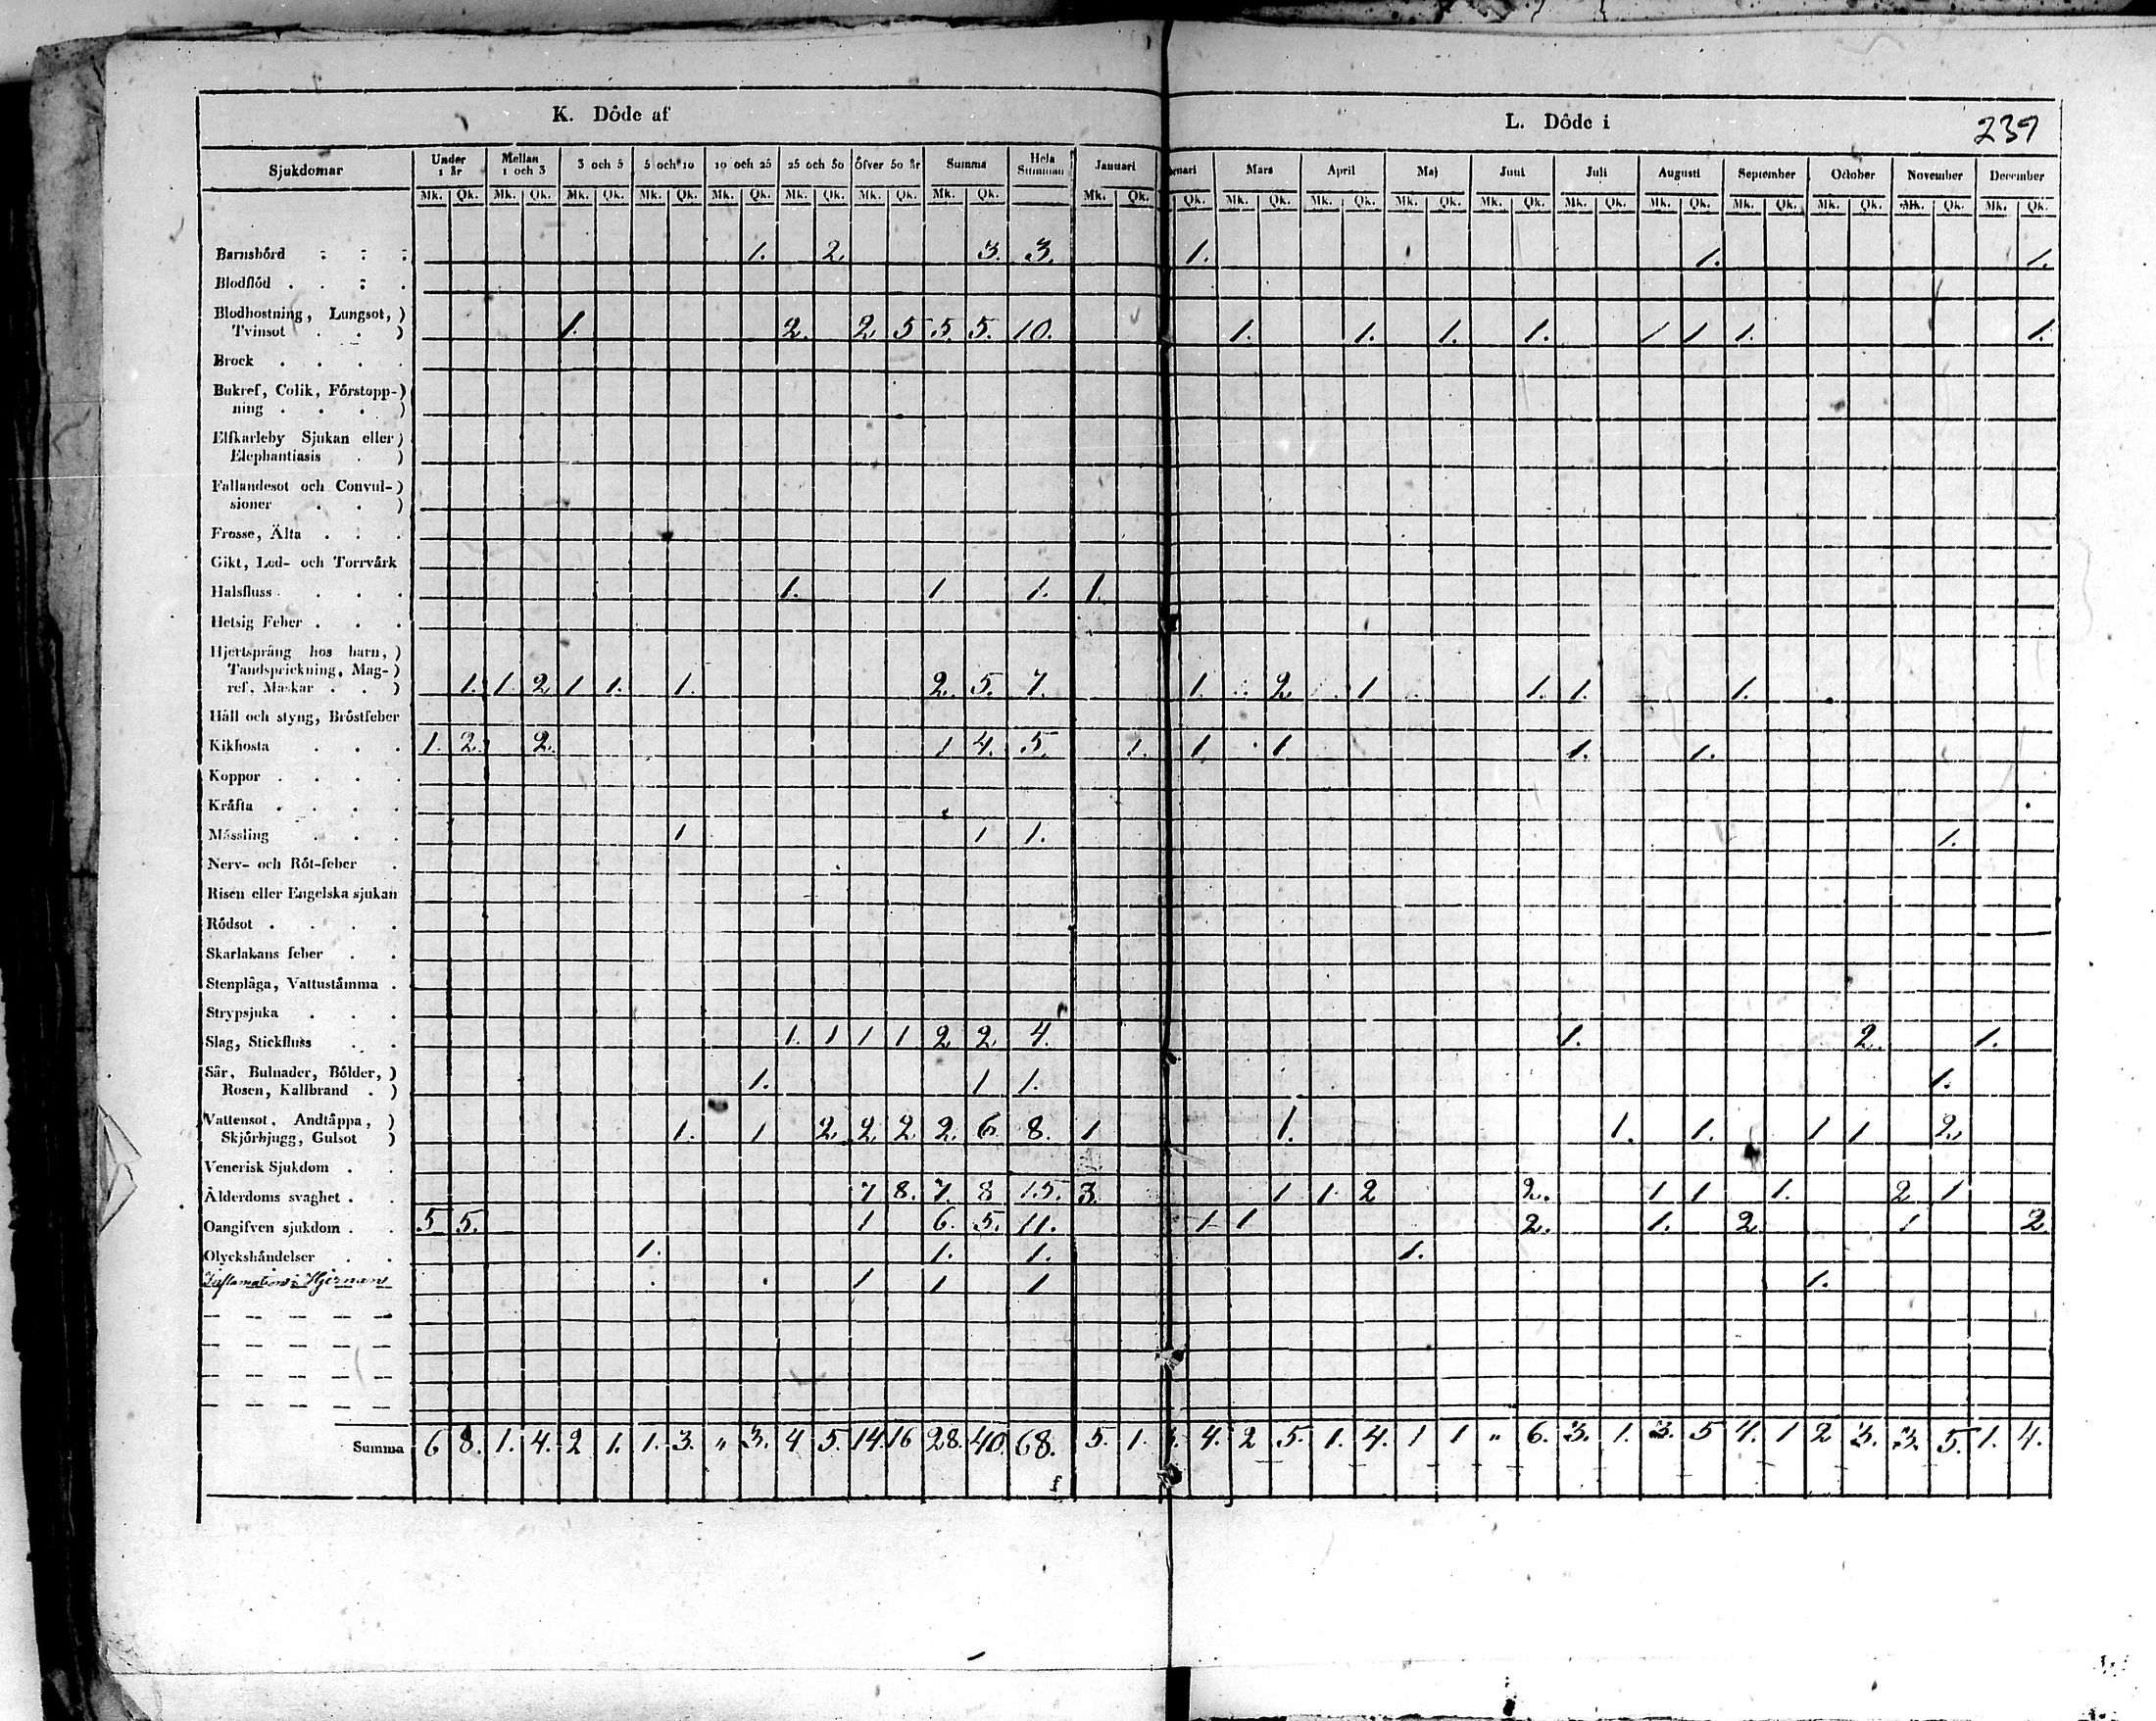 K. Döde af L. Döde i 239
Sjukdomar Under 1 år Mellan 1 och 3 3 och 5 5 och 10 10 och 25 25 och 50 Öfver 50 år Summa Hela Summan Januari Mars April Maj Juni Juli Augusti September October November December
Mk. Qk. Mk. Qk. Mk. Qk. Mk. Qk. Mk. Qk. Mk. Qk. Mk. Qk. Mk. Qk. Mk. Qk. Qk. Mk. Qk. Mk. Qk. Mk. Qk. Mk. Qk. Mk. Qk. Mk. Qk. Mk. Qk. Mk. Qk. Mk. Qk. Mk. Qk.
Barnsbörd 1. 2. 3. 3. 1. 1. 1.
Blodflöd
Blodhostning, Lungsot,)
Tvinsot ) 1. 2. 2. 5 5. 5. 10. 1. 1. 1. 1. 1 1 1. 1.
Brock
Bukref, Colik, Förstopp-)
ning )
Elfkarleby Sjukan eller)
Elephantiasis )
Fallandesot och Convul-)
sioner )
Frosse, Älta
Gikt, Led- och Torrvärk
Halsfluss 1. 1 1. 1.
Hetsig Feber
Hjertsprång hos barn,)
Tandsprickning, Mag-)
ref, Maskar ) 1. 1. 2 1 1. 1. 2. 5. 7. 1. 2. 1 1. 1. 1.
Håll och styng, Bröstfeber
Kikhosta 1. 2. 2. 1 4. 5. 1. 1 1 1. 1.
Koppor
Kräfta
Mässling 1 1 1. 1.
Nerv- och Röt-feber
Risen eller Engelska sjukan
Rödsot
Skarlakans feber
Stenplåga, Vattustämma
Strypsjuka
Slag, Stickfluss 1. 1 1 1 2 2 4. 1. 2. 1.
Sår, Bulnader, Bölder,)
Rosen, Kallbrand ) 1. 1 1. 1.
Vattensot, Andtäppa,)
Skjörbjugg, Gulsot ) 1. 1 2. 2. 2 2. 6. 8. 1 1. 1. 1. 1 1 2.
Venerisk Sjukdom
Ålderdoms svaghet 7 8. 7. 8 15. 3. 1 1. 2 2. 1 1 1. 2 1
Oangifven sjukdom 5 5. 1 6. 5. 11. 1 1 2. 1. 2 1 2
Olyckshändelser 1. 1. 1. 1.
Inflamation i Hjernan 1 1 1 1.
Summa 6 8. 1. 4. 2 1. 1. 3. " 3. 4 5. 14. 16 28. 40. 68. 5. 1. 4. 2 5. 1. 4. 1 1 " 6. 3. 1. 3. 5 4. 1 2 3. 3. 5. 1. 4.